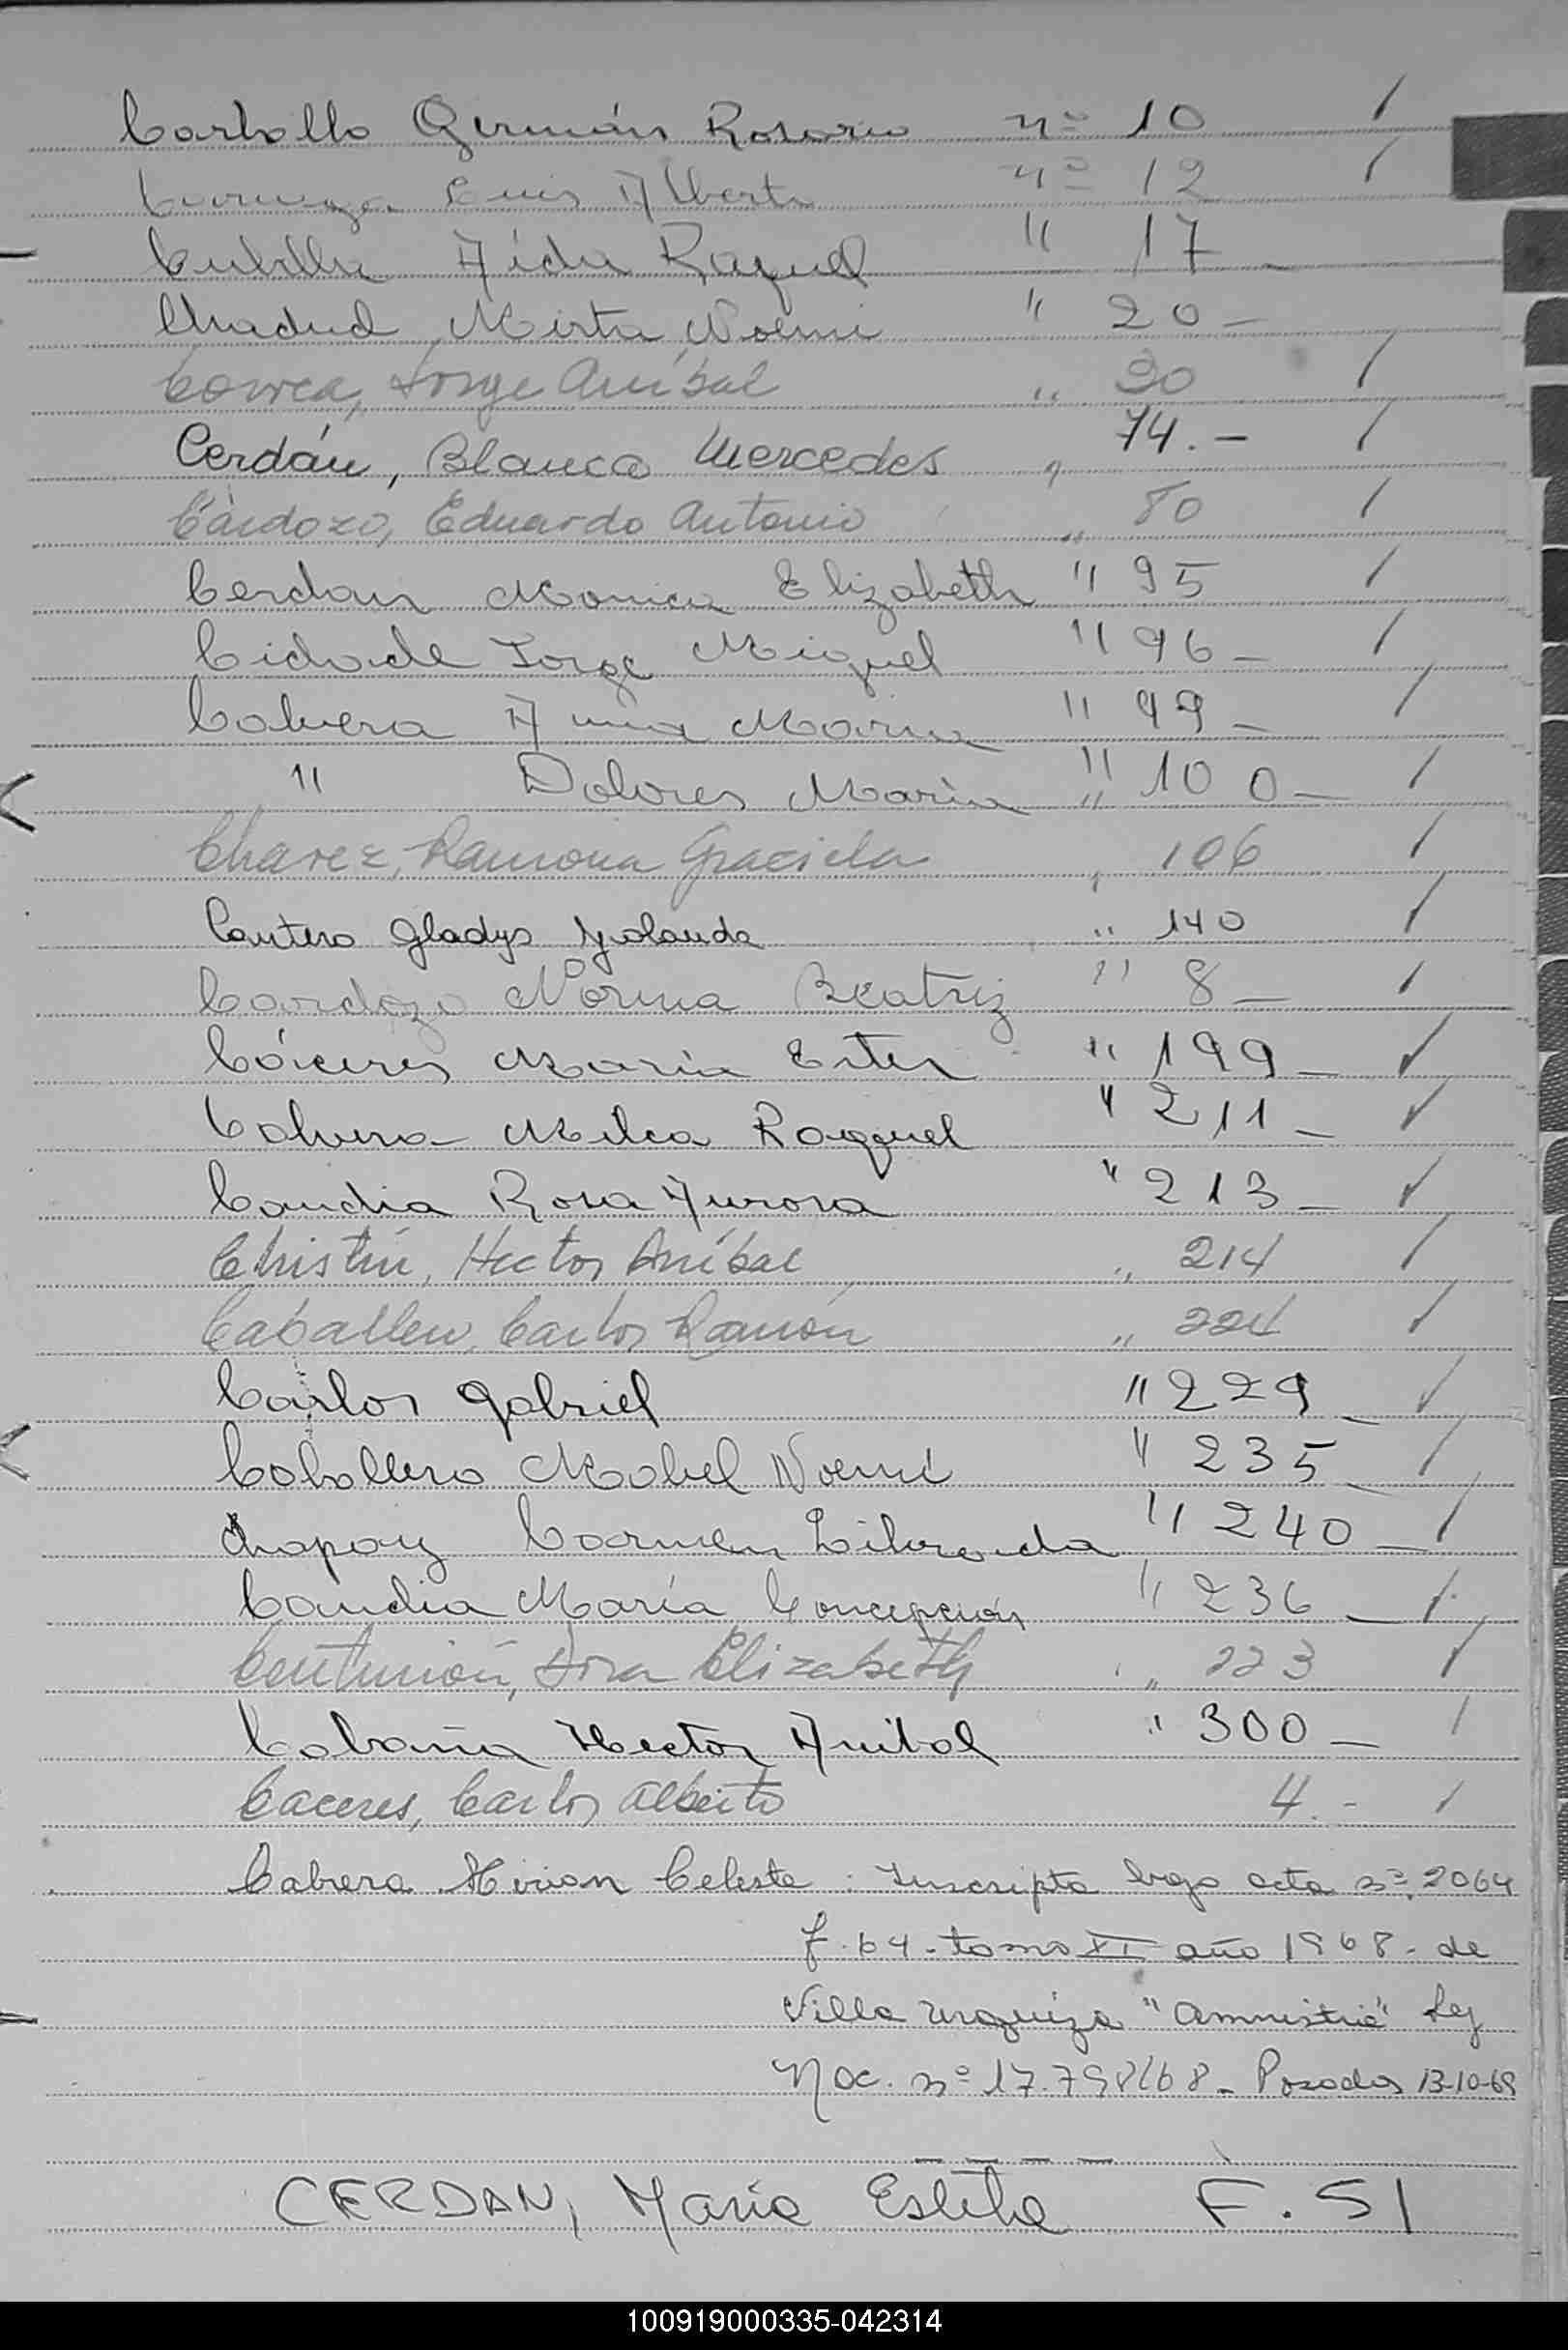 Carballo Germán Rosario nº 10 /
Luis Alberto nº 12 /
Cubilla Aida Raquel " 17 -
Chadud Mirta Noemi " 20 -
Correa, Jorge Aníbal " 30 /
Cerdán, Blanca Mercedes " 74.- /
Cárdozo, Eduardo Antonio " 80 /
Cerdan Monica Elizabeth " 95 /
Cidade Jorge Miguel " 96 - /
Cabrera Ana Maria " 99 - /
" Dolores Maria " 100 - /
Chavez, Ramona Graciela " 106 /
Cantero Gladys Yolanda " 140 /
Cardozo Norma Beatriz " 8 - /
Cáceres Maria Ester " 199 - ✓
Cabrera Milca Raquel " 211 - ✓
Candia Rosa Aurora " 213 - ✓
Christin, Hector Aníbal " 214 /
Caballero, Carlos Ramón " 224 /
Carlos Gabriel " 229 - ✓
Caballero Mabel Noemí " 235 - /
Chapay Carmen Librada " 240 - /
Candia María Concepción " 236 - /
Centurión, Dora Elizabeth " 223 /
Cabaña Hector Anibal " 300 - /
Caceres, Carlos Alberto 4.- /
Cabrera Mirian Celeste : Inscripta bajo acta nº 2064
f. 64 - tomo XI año 1968 - de
Villa Urquiza "Amnistia" Ley
Nac. nº 17.798/68 - Posadas 13-10-69
CERDAN, María Estela F. 51
100919000335-042314